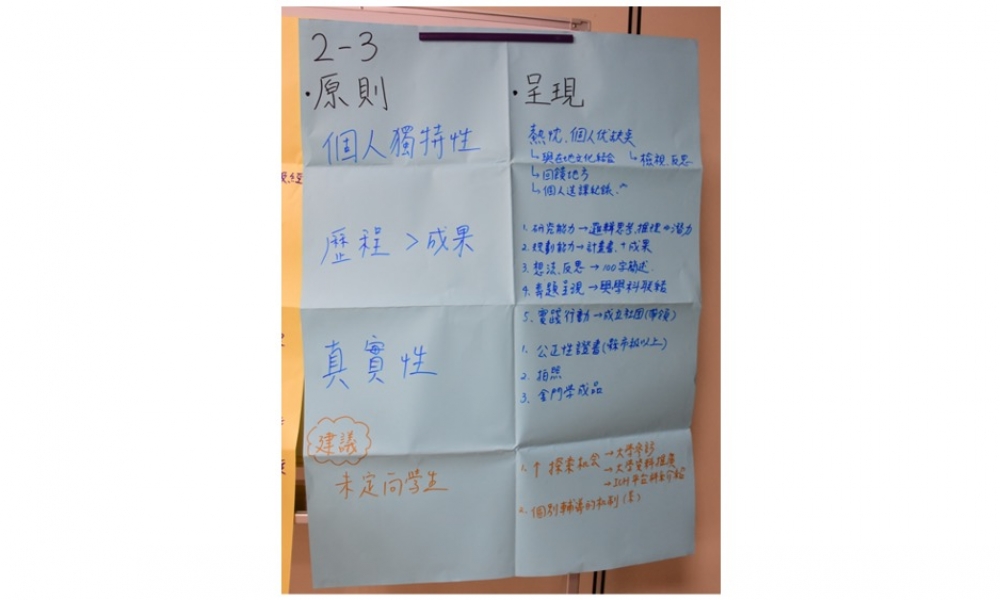 2-3
·原則
·呈現
個人獨特性
熱忱、個人优缺失
↳與在地文化結合 ↳檢視、反思
↳回饋地方
↳個人選課紀錄
歷程 > 成果
1. 研究能力→邏輯思考、推使⇒潛力
2. 規劃能力→計畫書、↑成果
3. 想法、反思→100字簡述.
4. 專題呈現→與學科联結
5. 實踐行動→成立社团(帶領)
真實性
1. 公正性證書(縣市級以上)
2. 拍照
3. 金門學成品
建議
未定向學生
1. ↑探索机会→大學參訪
→大學資料搜尋
2. 個別輔導的机制